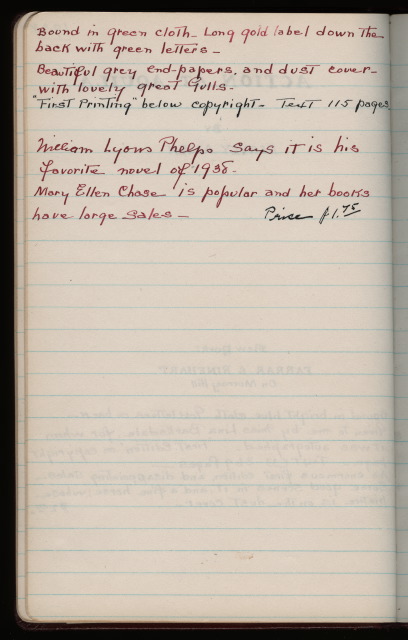 Bound in green cloth - Long gold label down the
back with green letters -
Beautiful grey end-papers, and dust cover -
with lovely great Gulls -
"First Printing" below copyright - Text 115 pages
William Lyons Phelps says it is his
favorite novel of 1938.
Mary Ellen Chase is popular and her books
have large sales - Price $1.75